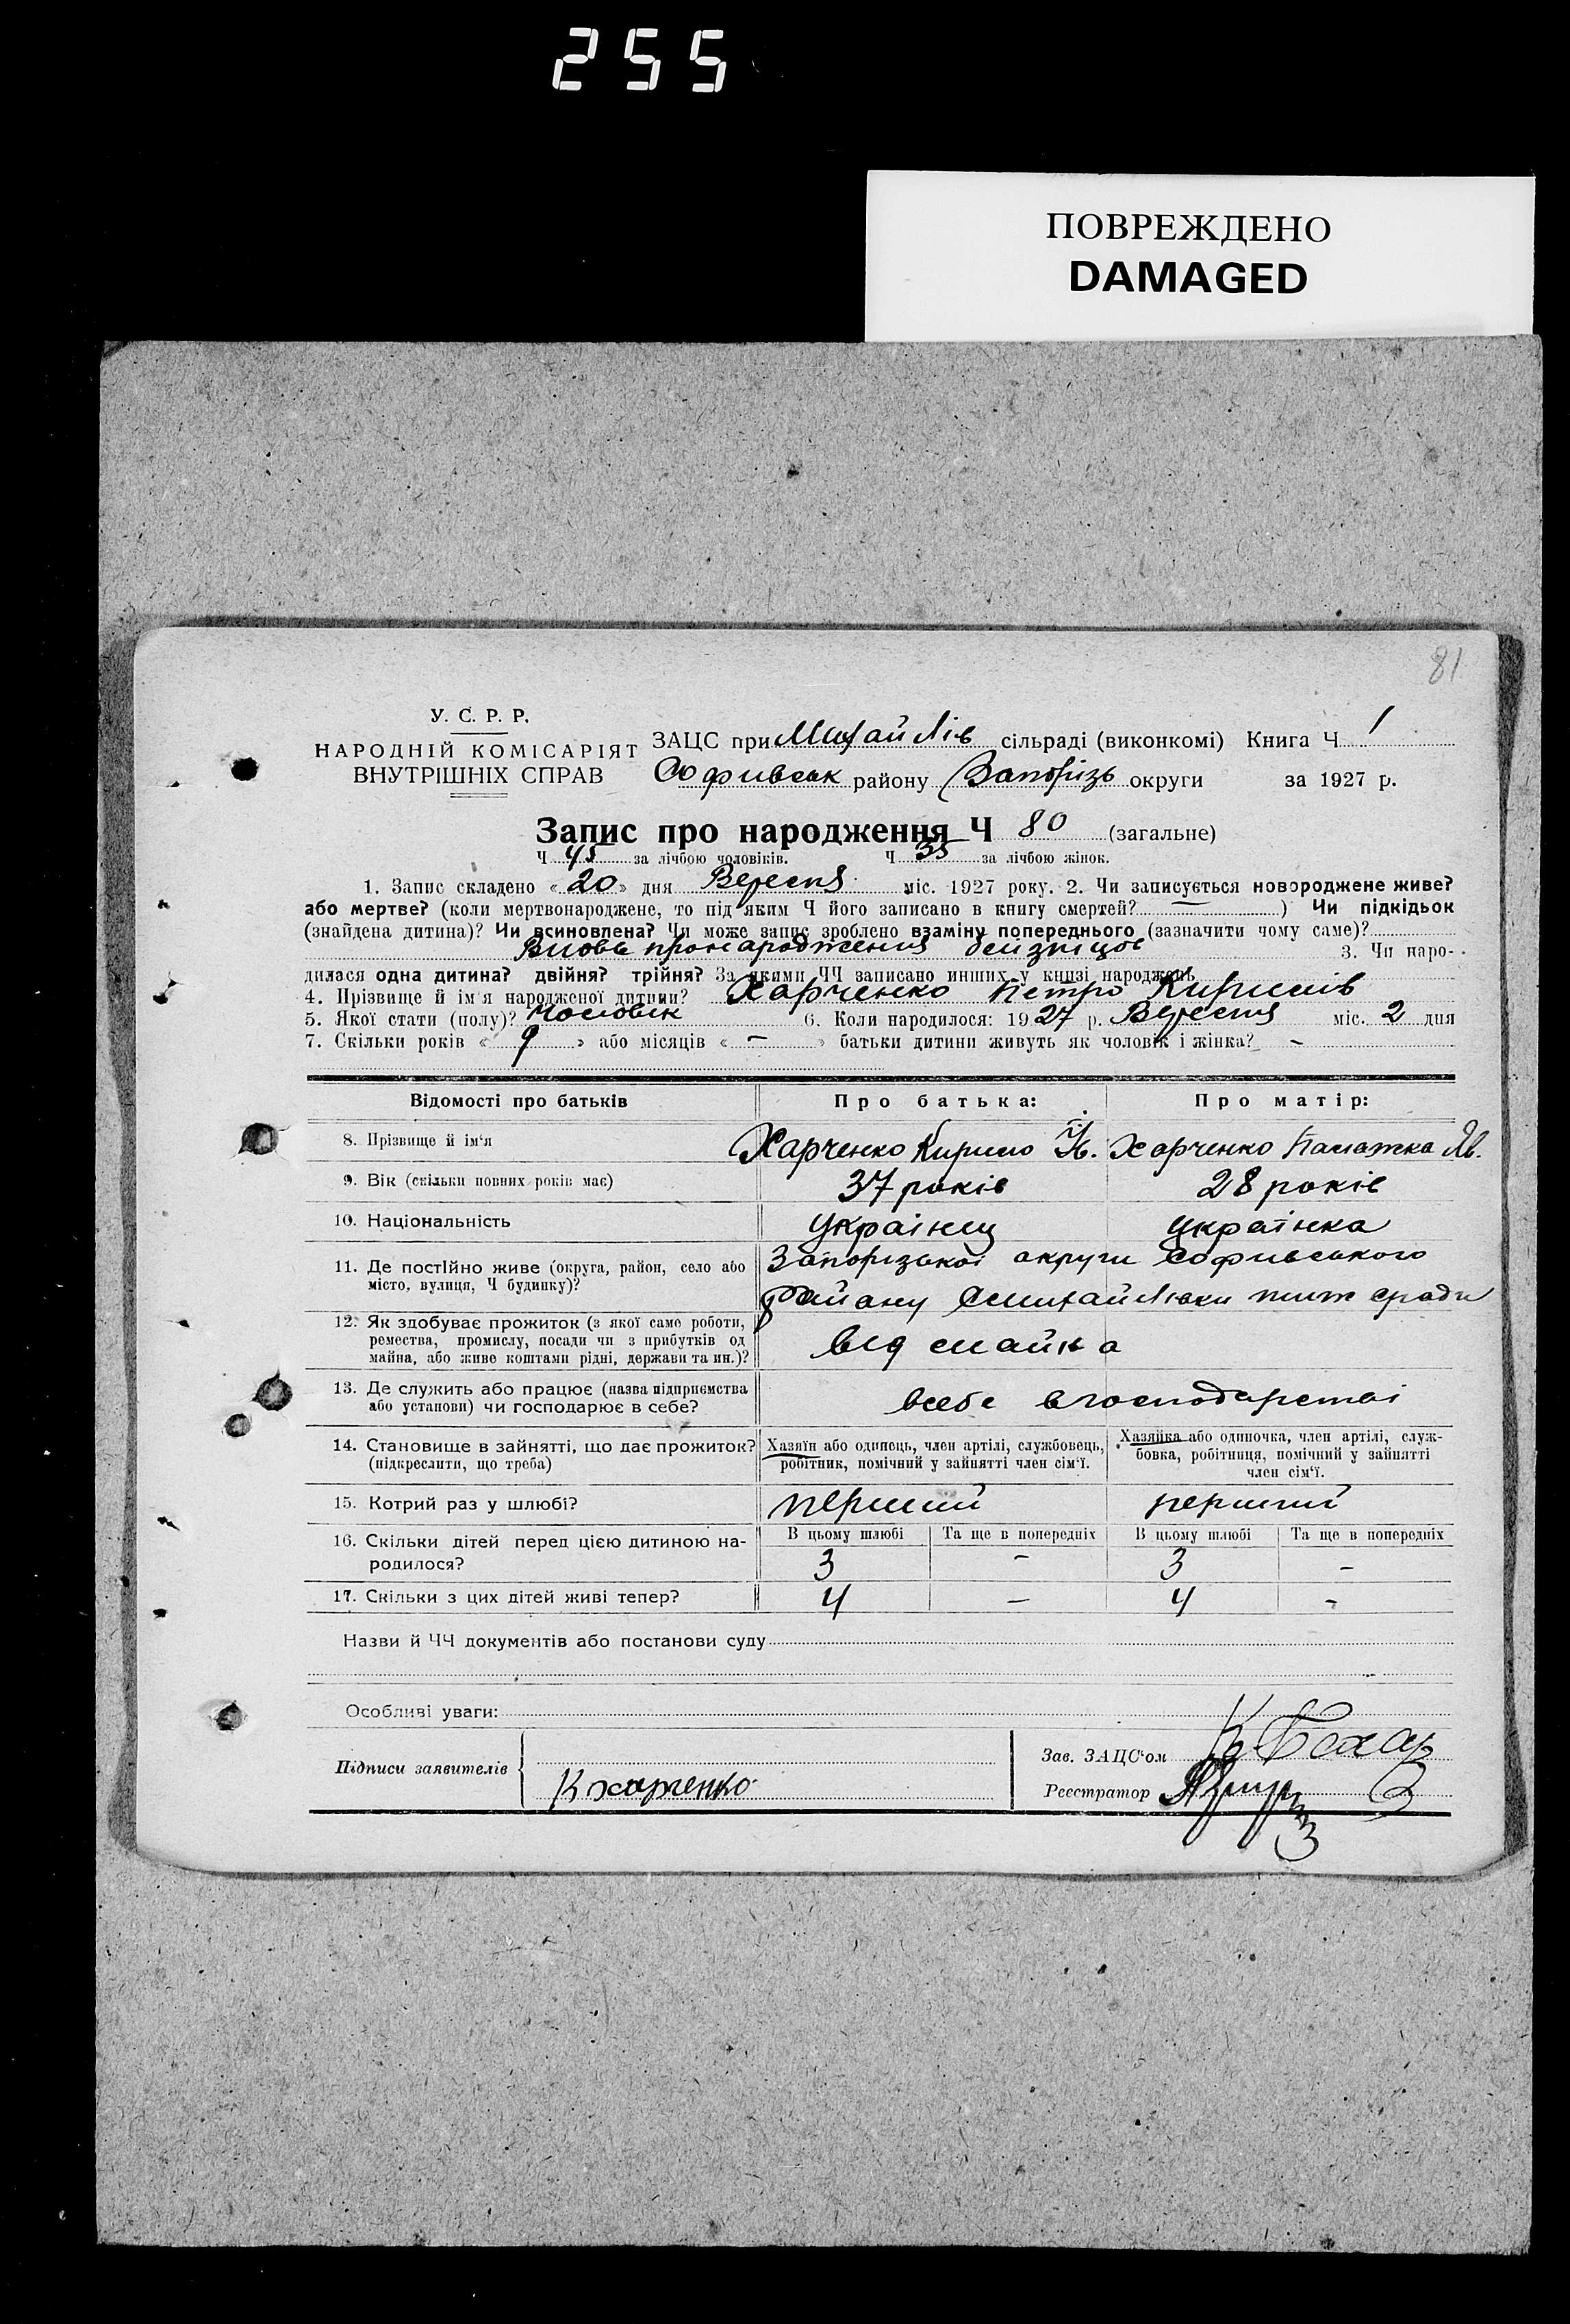 255
ПОВРЕЖДЕНО
DAMAGED
81
У. С. Р. Р.
НАРОДНІЙ КОМІСАРІЯТ
ВНУТРІШНІХ СПРАВ
ЗАЦС при Михайлів сільраді (виконкомі) Книга Ч 1
Софиевськ району Запоріз округи за 1927 р.
Запис про народження Ч 80 (загальне)
Ч 45 за лічбою чоловіків. Ч 35 за лічбою жінок.
1. Запис складено « 20 » дня Вересня міс. 1927 року. 2. Чи записується новороджене живе?
або мертве? (коли мертвонароджене, то під яким Ч його записано в книгу смертей? — ) Чи підкідьок
(знайдена дитина)? Чи всиновлена? Чи може запис зроблено взаміну попереднього (зазначити чому саме)?
3. Чи наро-
дилася одна дитина? двійня? трійня? За якими ЧЧ записано инших у книзі народжень
4. Прізвище й ім'я народженої дитини? Харченко Петро Кирилів
5. Якої стати (полу)? Чоловік 6. Коли народилося: 1927 р. Вересня міс. 2 дня
7. Скільки років « 9 » або місяців « - » батьки дитини живуть як чоловік і жінка? -
Відомості про батьків Про батька: Про матір:
8. Прізвище й ім'я Харченко Кирило Харченко Палажка Яв.
9. Вік (скільки повних років має) 37 років 28 років
10. Національність Украінец українка
11. Де постійно живе (округа, район, село або Запорізькоі округи Софивського
місто, вулиця, Ч будинку)? Району
12. Як здобуває прожиток (з якої само роботи,
ремества, промислу, посади чи з прибутків од
майна, або живе коштами рідні, держави та ин.)? від майна
13. Де служить або працює (назва підприємства
або установи) чи господарює в себе? всебе вгосподарстві
14. Становище в зайнятті, що дає прожиток?
(підкреслити, що треба)
Хазяїн або одинець, член артілі, службовець,
робітник, помічний у зайнятті член сім'ї.
Хазяйка або одиночка, член артілі, служ-
бовка, робітниця, помічний у зайнятті
член сім'ї.
15. Котрий раз у шлюбі? перший перший
16. Скільки дітей перед цією дитиною на-
родилося?
В цьому шлюбі Та ще в попередніх В цьому шлюбі Та ще в попередніх
3 - 3 -
17. Скільки з цих дітей живі тепер? 4 — 4 -
Назви й ЧЧ документів або постанови суду
Особливі уваги:
Підписи заявителів К харченко
Зав. ЗАЦС'ом
Реєстратор